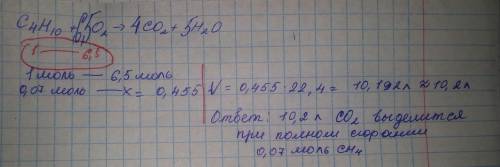 C₄H₁₀ + 6,5O₂ → 4CO₂ + 5H₂O
1 — 6,5
1 моль — 6,5 моль
0,07 моль — x = 0,455
V = 0,455 · 22,4 = 10,192л ≈ 10,2л
Ответ: 10,2л CO₂ выделится
при полном сгорании
0,07 моль CH₄